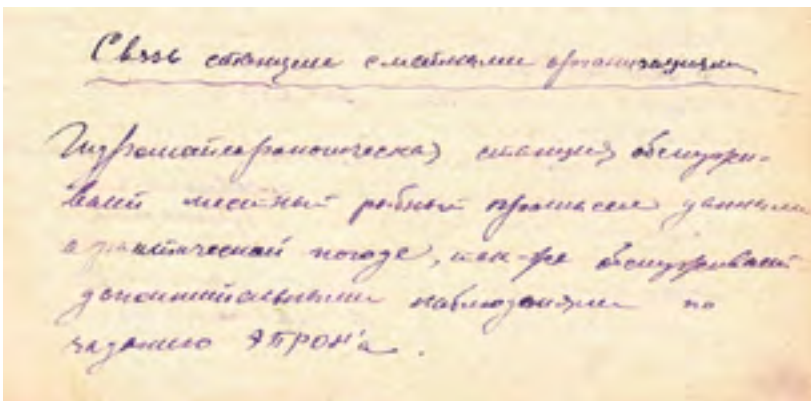 Связь станции с местными организациями
Гидрометеорологическая станция обслужи-
вает местный рыбный промысел данными
о фактической погоде, так-же обслуживает
дополнительными наблюдениями по
заданию ЭПРОН'а.